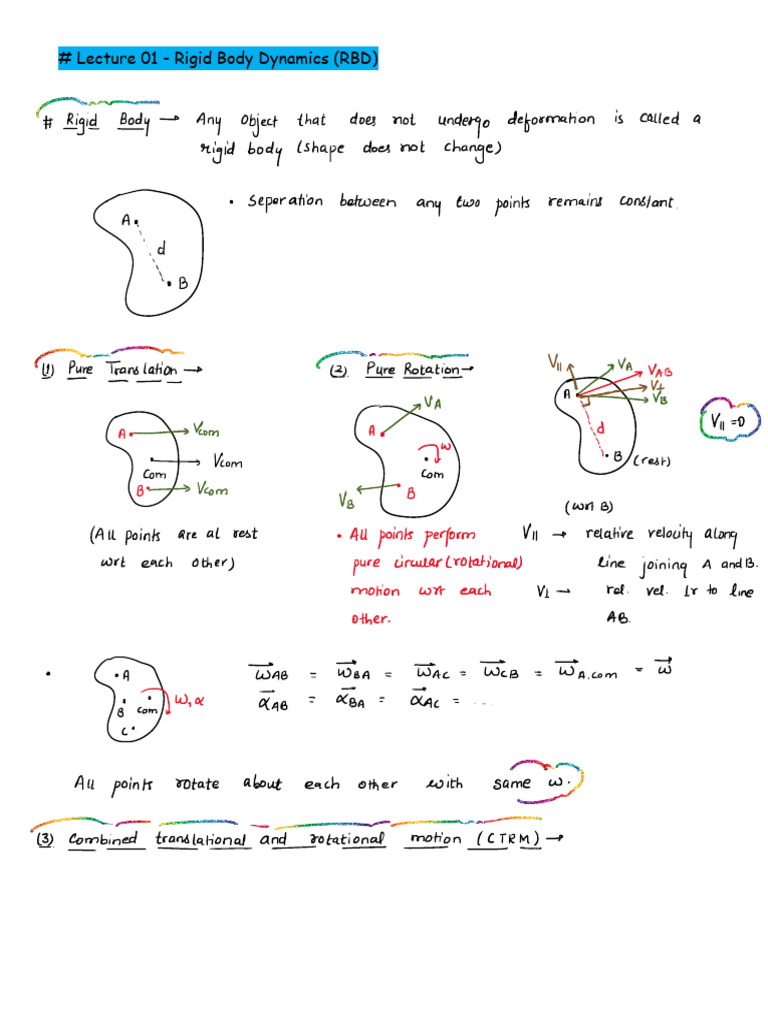 # Lecture 01 - Rigid Body Dynamics (RBD)
# Rigid Body → Any object that does not undergo deformation is called a
rigid body (shape does not change)
• Seperation between any two points remains constant.
A
d
B
(1) Pure Translation →
(2). Pure Rotation →
A
Vcom
com
Vcom
B
Vcom
A
VA
ω
com
B
VB
V||
VA
VAB
V⊥
VB
A
d
B
(rest)
V|| = 0
(wrt B)
(All points are at rest
wrt each other)
• All points perform
pure circular (rotational)
motion wrt each
other.
V|| → relative velocity along
line joining A and B.
V⊥ → rel. vel. ⊥r to line
AB.
• A
B
com
C
ω, α
ωAB = ωBA = ωAC = ωCB = ωA.com = ω
αAB = αBA = αAC = ....
All points rotate about each other with same ω.
(3) Combined translational and rotational motion (CTRM) →